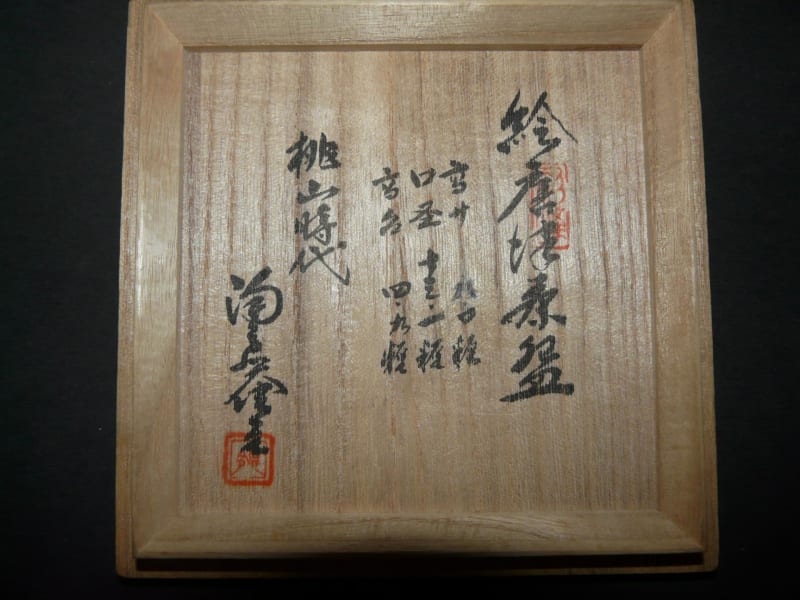 絵唐津茶盌
高サ 糎
口径 十三・一糎
高台 四・九糎
桃山時代